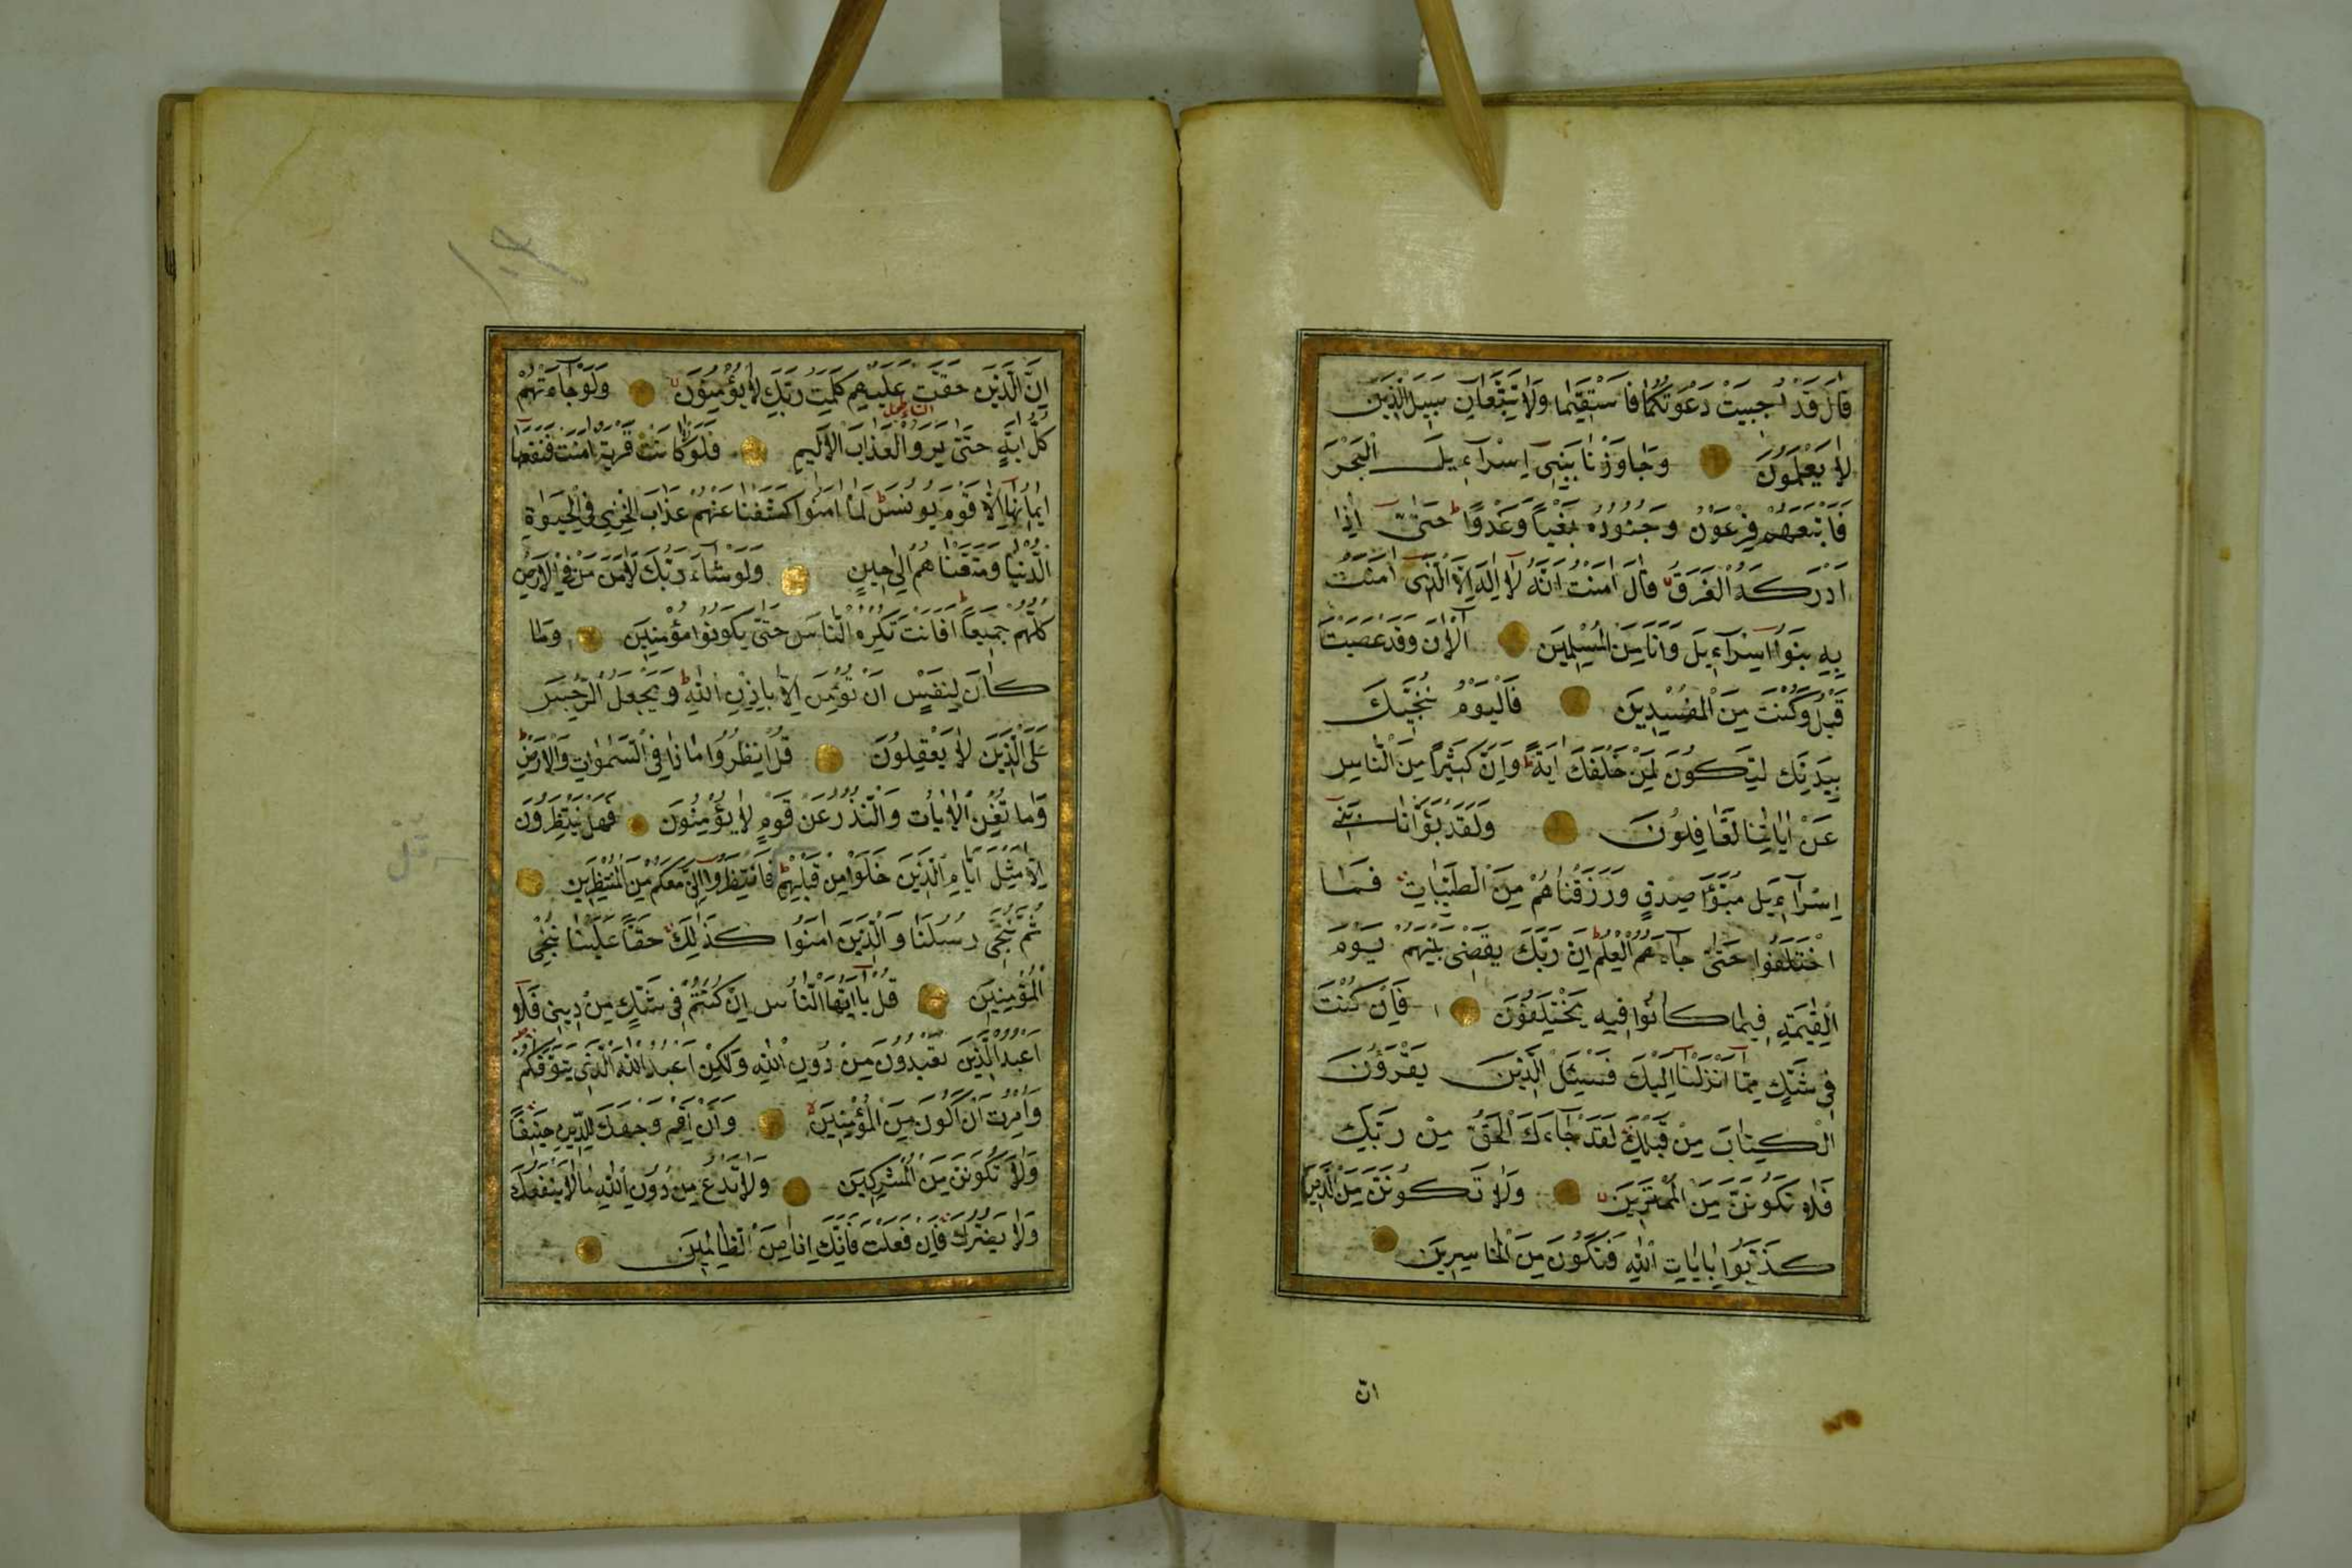 قَالَ قَدْ اُجِيبَتْ دَعْوَتُكُمَا فَاسْتَقِيمَا وَلَا تَتَّبِعَانِّ سَبِيلَ الَّذِينَ
لَا يَعْلَمُونَ وَجَاوَزْنَا بِبَنِي اِسْرَآءِيلَ الْبَحْرَ
فَاَتْبَعَهُمْ فِرْعَوْنُ وَجُنُودُهُ بَغْيًا وَعَدْوًا ط حَتَّى اِذَا
اَدْرَكَهُ الْغَرَقُ قَالَ اٰمَنْتُ اَنَّهُ لَا اِلٰهَ اِلَّا الَّذِي اٰمَنَتْ
بِهِ بَنُوا اِسْرَآءِيلَ وَاَنَا مِنَ الْمُسْلِمِينَ آلْاٰنَ وَقَدْ عَصَيْتَ
قَبْلُ وَكُنْتَ مِنَ الْمُفْسِدِينَ فَالْيَوْمَ نُنَجِّيكَ
بِبَدَنِكَ لِتَكُونَ لِمَنْ خَلْفَكَ اٰيَةً ط وَاِنَّ كَثِيرًا مِنَ النَّاسِ
عَنْ اٰيَاتِنَا لَغَافِلُونَ وَلَقَدْ بَوَّأْنَا بَنِي
اِسْرَآءِيلَ مُبَوَّأَ صِدْقٍ وَرَزَقْنَاهُمْ مِنَ الطَّيِّبَاتِ فَمَا
اخْتَلَفُوا حَتَّى جَآءَهُمُ الْعِلْمُ ط اِنَّ رَبَّكَ يَقْضِي بَيْنَهُمْ يَوْمَ
الْقِيٰمَةِ فِيمَا كَانُوا فِيهِ يَخْتَلِفُونَ فَاِنْ كُنْتَ
فِي شَكٍّ مِمَّا اَنْزَلْنَا اِلَيْكَ فَسْئَلِ الَّذِينَ يَقْرَؤُنَ
الْكِتَابَ مِنْ قَبْلِكَ لَقَدْ جَآءَكَ الْحَقُّ مِنْ رَبِّكَ
فَلَا تَكُونَنَّ مِنَ الْمُمْتَرِينَ وَلَا تَكُونَنَّ مِنَ الَّذِينَ
كَذَّبُوا بِاٰيَاتِ اللّٰهِ فَتَكُونَ مِنَ الْخَاسِرِينَ
ان
اِنَّ الَّذِينَ حَقَّتْ عَلَيْهِمْ كَلِمَتُ رَبِّكَ لَا يُؤْمِنُونَ وَلَوْ جَآءَتْهُمْ
كُلُّ اٰيَةٍ حَتَّى يَرَوُا الْعَذَابَ الْاَلِيمَ فَلَوْلَا كَانَتْ قَرْيَةٌ اٰمَنَتْ فَنَفَعَهَا
اِيمَانُهَا اِلَّا قَوْمَ يُونُسَ ط لَمَّا اٰمَنُوا كَشَفْنَا عَنْهُمْ عَذَابَ الْخِزْيِ فِي الْحَيٰوةِ
الدُّنْيَا وَمَتَّعْنَاهُمْ اِلَى حِينٍ وَلَوْ شَآءَ رَبُّكَ لَاٰمَنَ مَنْ فِي الْاَرْضِ
كُلُّهُمْ جَمِيعًا ط اَفَاَنْتَ تُكْرِهُ النَّاسَ حَتَّى يَكُونُوا مُؤْمِنِينَ وَمَا
كَانَ لِنَفْسٍ اَنْ تُؤْمِنَ اِلَّا بِاِذْنِ اللّٰهِ ط وَيَجْعَلُ الرِّجْسَ
عَلَى الَّذِينَ لَا يَعْقِلُونَ قُلِ انْظُرُوا مَاذَا فِي السَّمٰوَاتِ وَالْاَرْضِ ط
وَمَا تُغْنِي الْاٰيَاتُ وَالنُّذُرُ عَنْ قَوْمٍ لَا يُؤْمِنُونَ فَهَلْ يَنْتَظِرُونَ
اِلَّا مِثْلَ اَيَّامِ الَّذِينَ خَلَوْا مِنْ قَبْلِهِمْ ط فَانْتَظِرُوا اِنِّي مَعَكُمْ مِنَ الْمُنْتَظِرِينَ
ثُمَّ نُنَجِّي رُسُلَنَا وَالَّذِينَ اٰمَنُوا كَذٰلِكَ حَقًّا عَلَيْنَا نُنْجِي
الْمُؤْمِنِينَ قُلْ يَا اَيُّهَا النَّاسُ اِنْ كُنْتُمْ فِي شَكٍّ مِنْ دِينِي فَلَا
اَعْبُدُ الَّذِينَ تَعْبُدُونَ مِنْ دُونِ اللّٰهِ وَلٰكِنْ اَعْبُدُ اللّٰهَ الَّذِي يَتَوَفّٰكُمْ
وَاُمِرْتُ اَنْ اَكُونَ مِنَ الْمُؤْمِنِينَ وَاَنْ اَقِمْ وَجْهَكَ لِلدِّينِ حَنِيفًا
وَلَا تَكُونَنَّ مِنَ الْمُشْرِكِينَ وَلَا تَدْعُ مِنْ دُونِ اللّٰهِ مَا لَا يَنْفَعُكَ
وَلَا يَضُرُّكَ فَاِنْ فَعَلْتَ فَاِنَّكَ اِذًا مِنَ الظَّالِمِينَ